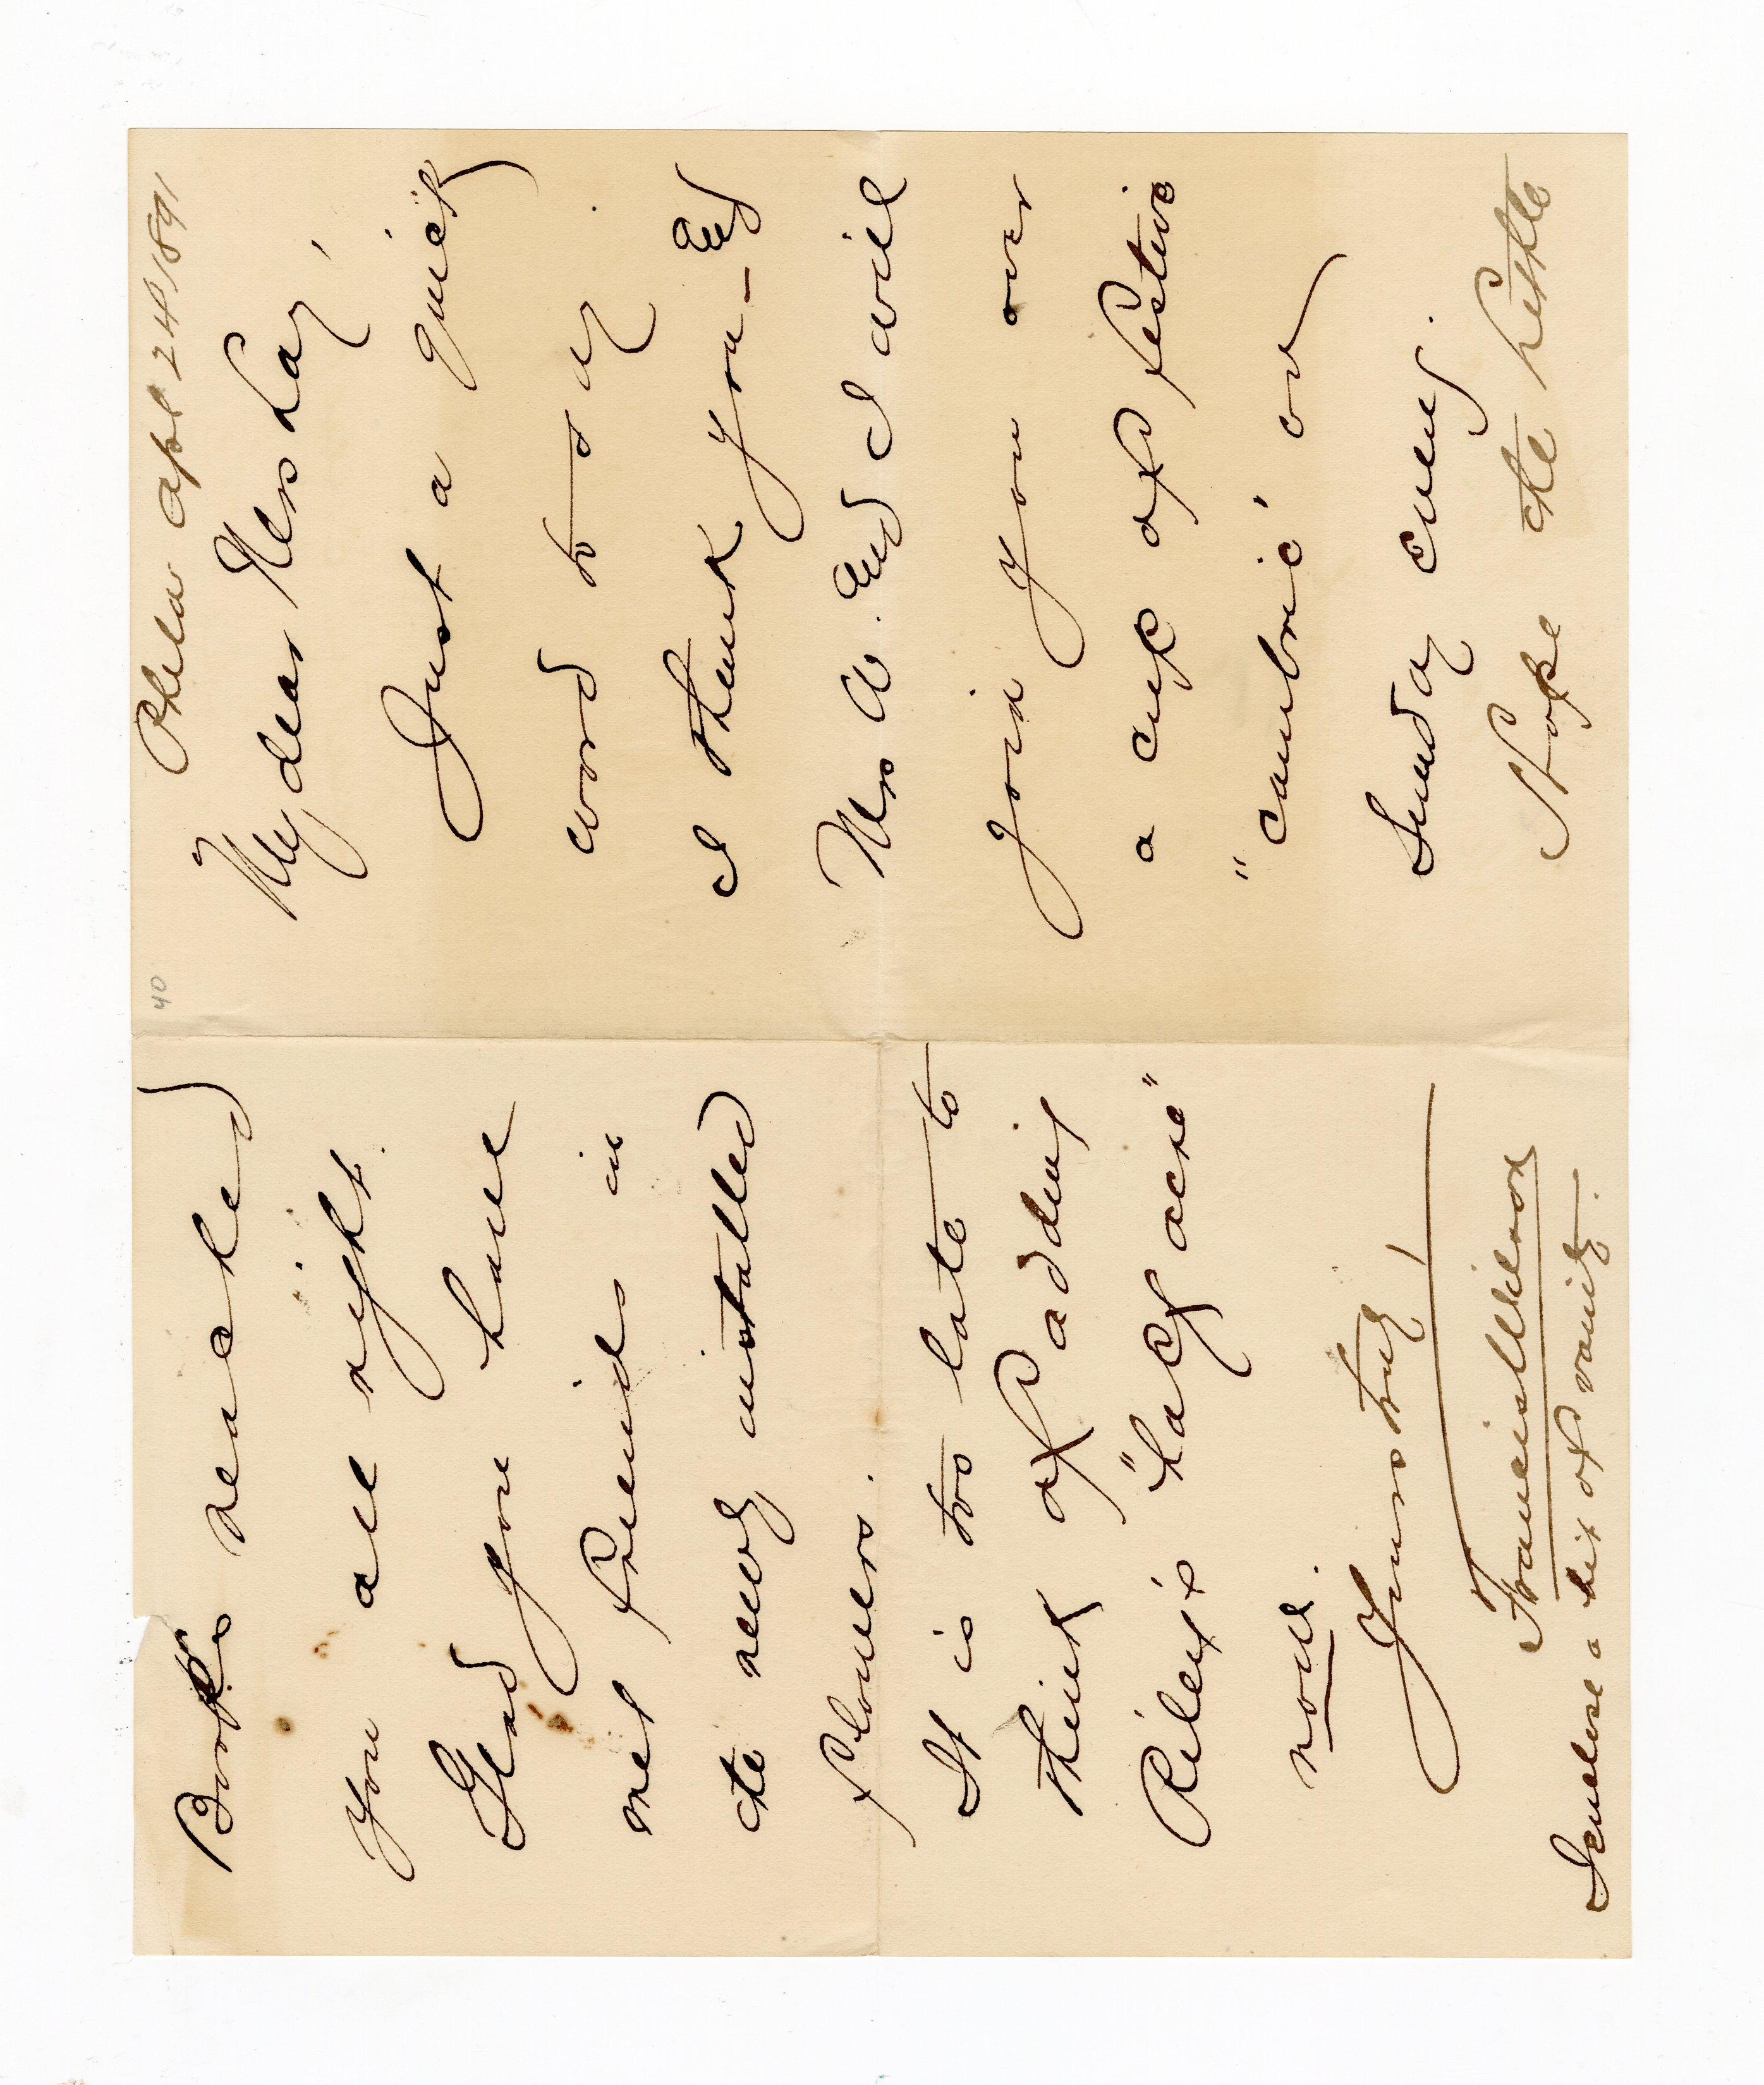 40
Phila Apl 24 1891
My dear Mrs Hay,
Just a quick
word to say
I thank you – and
Mrs W. and I will
join you over
a cup of festive
"cambric" on
Sunday eveng.
Hope the little
Books reached
you all right.
Glad you have
met friends in
the newly installed
Flowers.
It is too late to
think of adding
Riley's "half acre"
now.
Yours truly,
Francis Wilson
Inclose a bit of vanity.